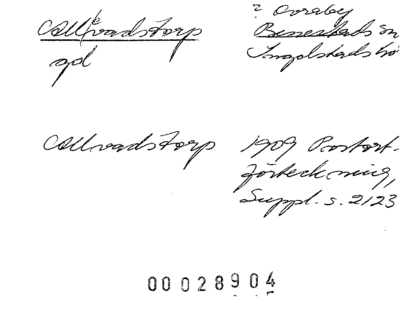 Allevadstorp
gd
? Ovraby
Benestads sn
Ingelstads hd
Allvadstorp
1909 Postort-
förteckning,
Suppl. s. 2123
00028904